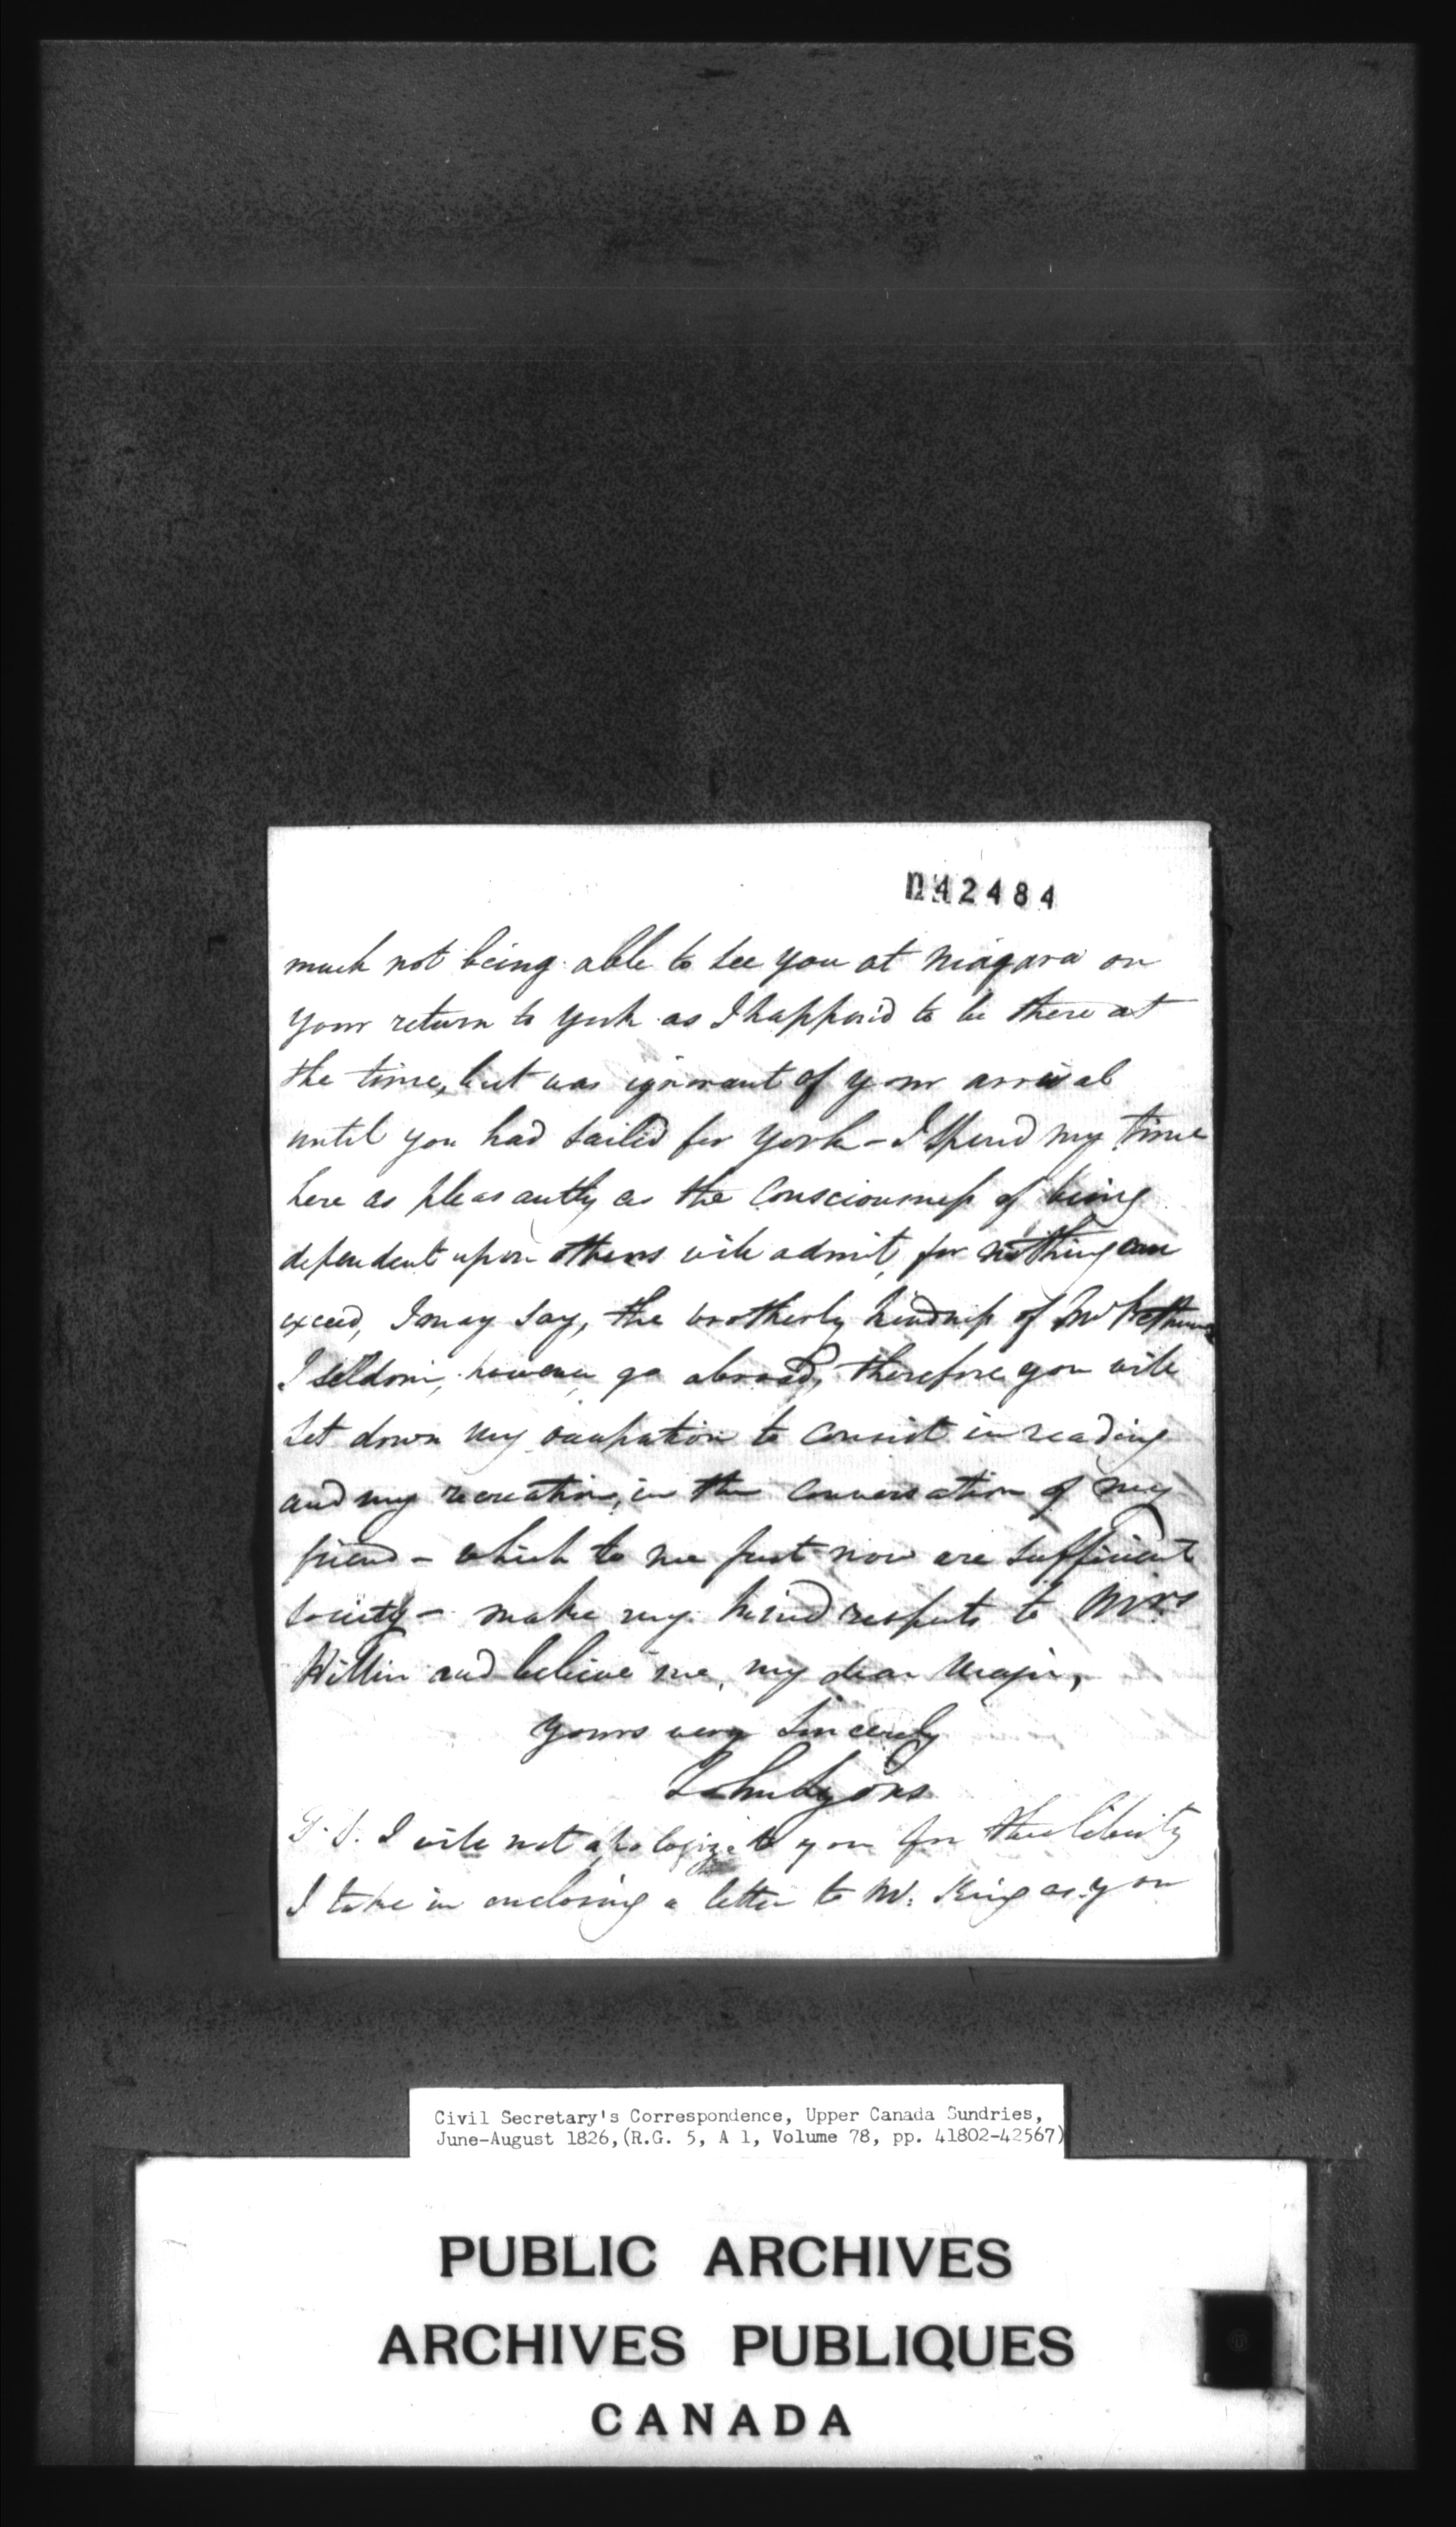 042484
much not being able to see you at Niagara on
your return to York as I happen'd to be there at
the time, but was ignorant of your arrival
until you had sailed for York – I spend my time
here as pleasantly as the Consciousness of being
dependent upon others will admit, for nothing can
exceed, I may say, the brotherly kindness of Mr Bethune
I seldom, however, go abroad, therefore you will
set down my occupation to consist in reading
and my recreation, in the conversation of my
friend – which to me just now are sufficient
society – make my kind respects to Mrs
Hillier and believe me, my dear Major,
yours very sincerely
John Lyons
P.S. I will not apologize to you for the liberty
I take in enclosing a letter to Mr. King as you
Civil Secretary's Correspondence, Upper Canada Sundries,
June-August 1826, (R.G. 5, A 1, Volume 78, pp. 41802-42567)
PUBLIC ARCHIVES
ARCHIVES PUBLIQUES
CANADA